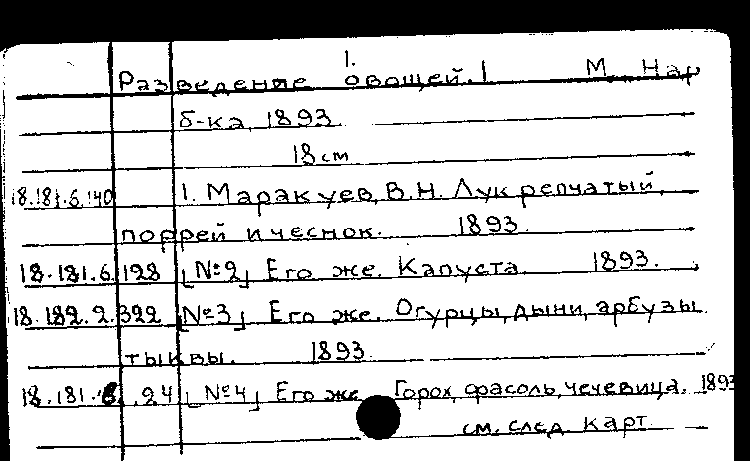 1.
Разведение овощей. 1 М. Нар
б-ка, 1893
18 см
18.181.6.140 1. Маракуев, В.Н. Лук репчатый,
поррей и чеснок. 1893
18.181.6.128 [№2] Его же. Капуста. 1893.
18.182.2.322 [№3] Его же. Огурцы, дыни, арбузы
тыквы. 1893
18.181.6.24 [№4] Его же Горох, фасоль, чечевица. 1893
см. след. карт.